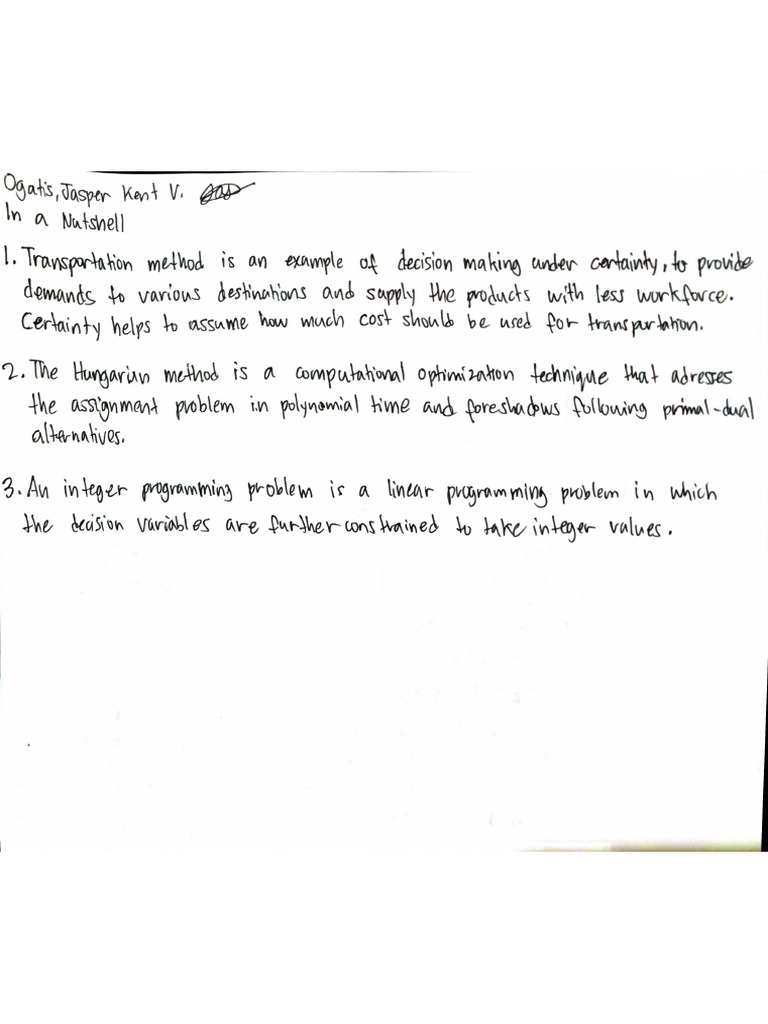 Ogatis, Jasper Kent V.
In a Nutshell
1. Transportation method is an example of decision making under certainty, to provide
demands to various destinations and supply the products with less workforce.
Certainty helps to assume how much cost should be used for transportation.
2. The Hungarian method is a computational optimization technique that adresses
the assignment problem in polynomial time and foreshadows following primal-dual
alternatives.
3. An integer programming problem is a linear programming problem in which
the decision variables are further constrained to take integer values.